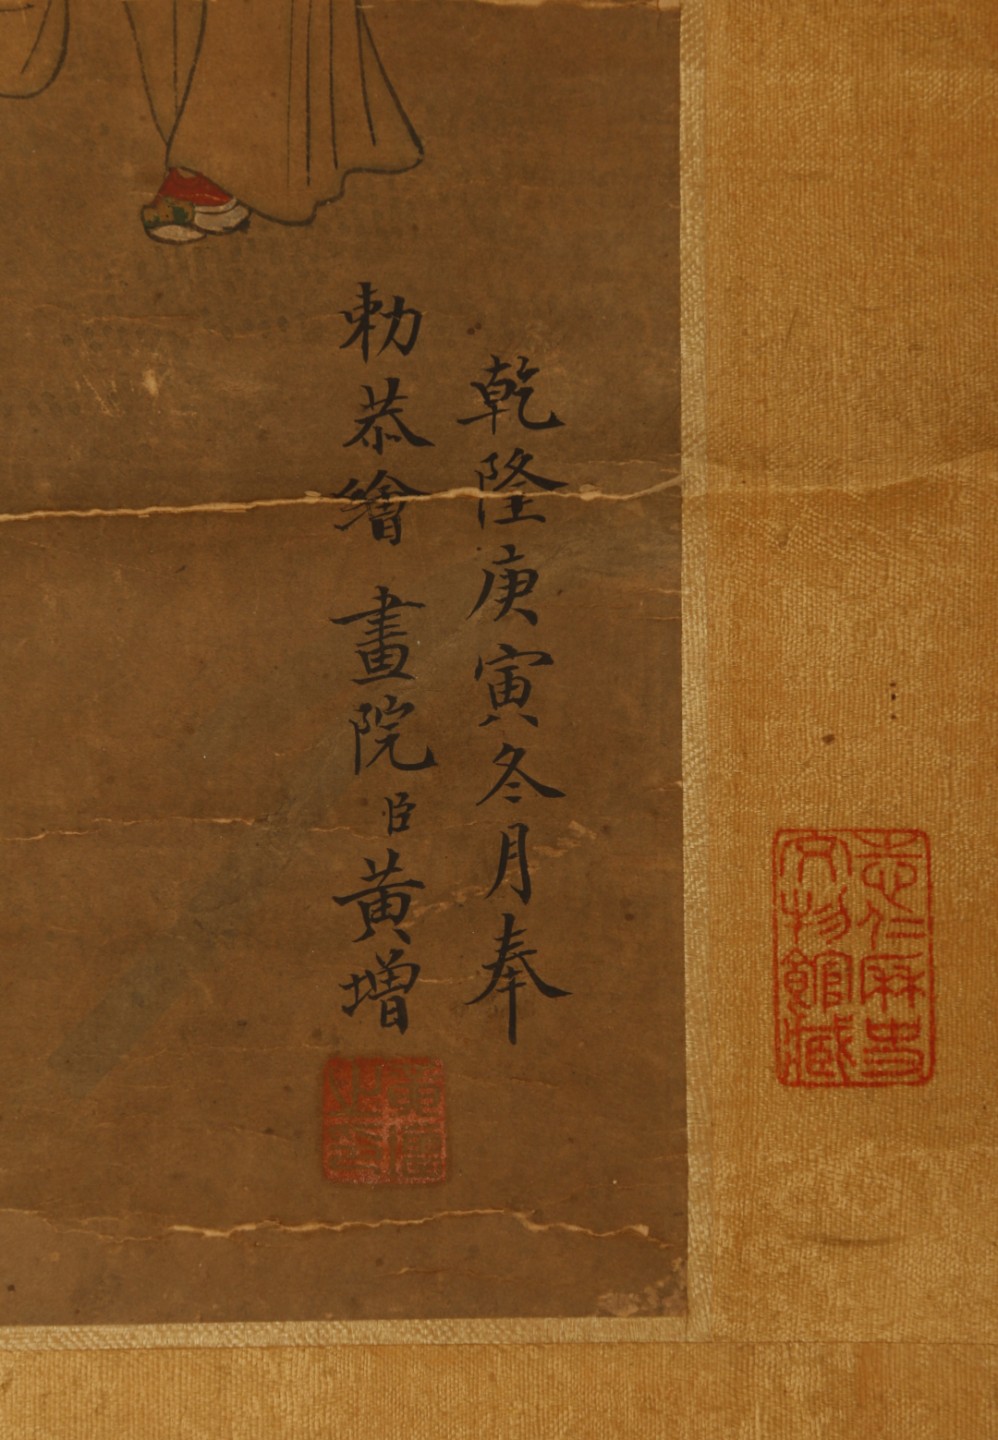 乾隆庚寅冬月奉
勅恭繪 畫院臣黃增
志仁歷史
文物館藏